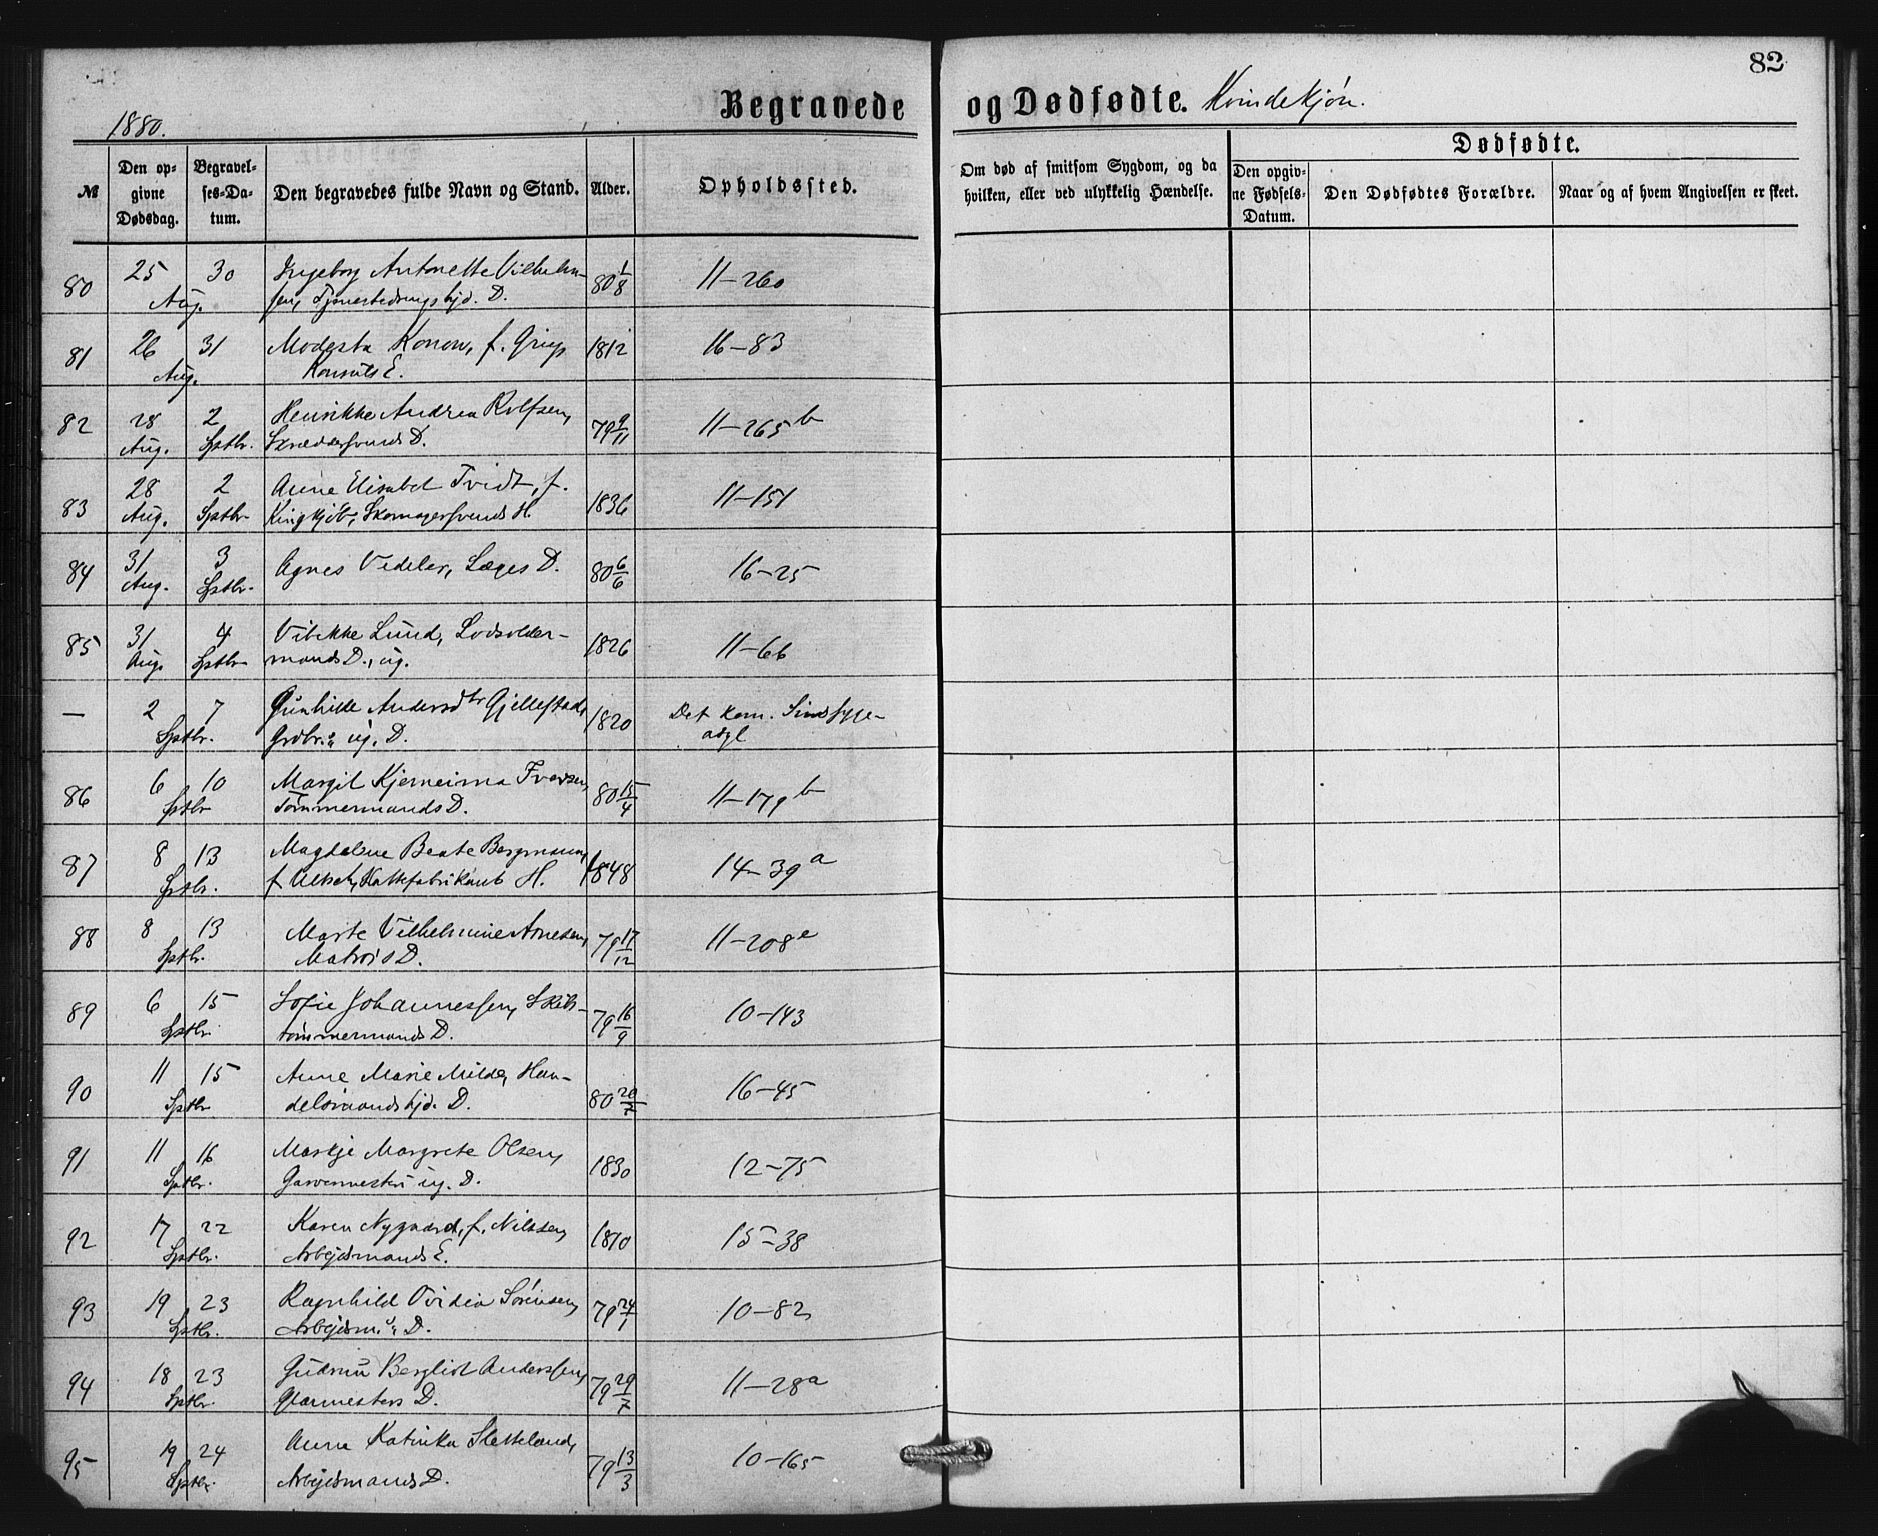 82
1880.
Begravede og Dødfødte. Kvindekjøn.
Dødfødte.
№
Den op-
givne
Dødsdag.
Begravel-
ses-Da-
tum.
Den begravedes fulde Navn og Stand.
Alder.
Opholdssted.
Om død af smitsom Sygdom, og da
hvilken, eller ved ulykkelig Hændelse.
Den opgiv-
ne Fødsels-
Datum.
Den Dødfødtes Forældre.
Naar og af hvem Angivelsen er skeet.
80 25 30 Ingeborg Antonette Vilhelm- 80 1/8 11-260
Aug. sen, D.
81 26 31 Modesta Konow, f. Grieg 1812 16-83
Aug. Konsuls E.
82 28 2 Henrikke Andrea Rolfsen, 79 9/11 11-265b
Aug. Sptbr. Skræddersvends D.
83 28 2 Anne Elisabet Tvidt, f. 1836 11-151
Aug. Sptbr. Skomagersvends H.
84 31 3 Agnes Vedeler, Læges D. 80 6/6 16-25
Aug. Sptbr.
85 31 4 Vibekke Lund, Lodsolder- 1826 11-66
Aug. Sptbr. mands D., ug.
— 2 7 Gunhilde Andersdtr Gjellestad, 1820 Det kom. Sindssyge-
Sptbr. Grdbr.s ug. D. asyl
86 6 10 Margit Iversen, 80 15/4 11-179b
Sptbr. Tømmermands D.
87 8 13 Magdalene Beate Bergmann, 1848 14-39a
Sptbr. f. Hattefabrikants H.
88 8 13 Marte Vilhelmine Arnesen, 79 17/12 11-208e
Sptbr. Matros D.
89 6 15 Sofie Johannessen, Skibs- 79 16/9 10-143
Sptbr. tømmermands D.
90 11 15 Anne Marie Milde, Han- 80 20/7 16-45
Sptbr. delsmands hjd. D.
91 11 16 Martje Margrete Olsen, 1830 12-75
Sptbr. Garvermesters ug. D.
92 17 22 Karen Nygaard, f. Nilssen, 1810 15-38
Sptbr. Arbejdsmands E.
93 19 23 Ragnhild Ovidia Sørensen, 79 24/1 10-82
Sptbr. Arbejdsm.s D.
94 18 23 Gudrun Bergliot Anderssen, 79 29/7 11-28a
Sptbr. Glarmesters D.
95 19 24 Anna Katinka Sletteland, 79 13/3 10-165
Sptbr. Arbejdsmands D.